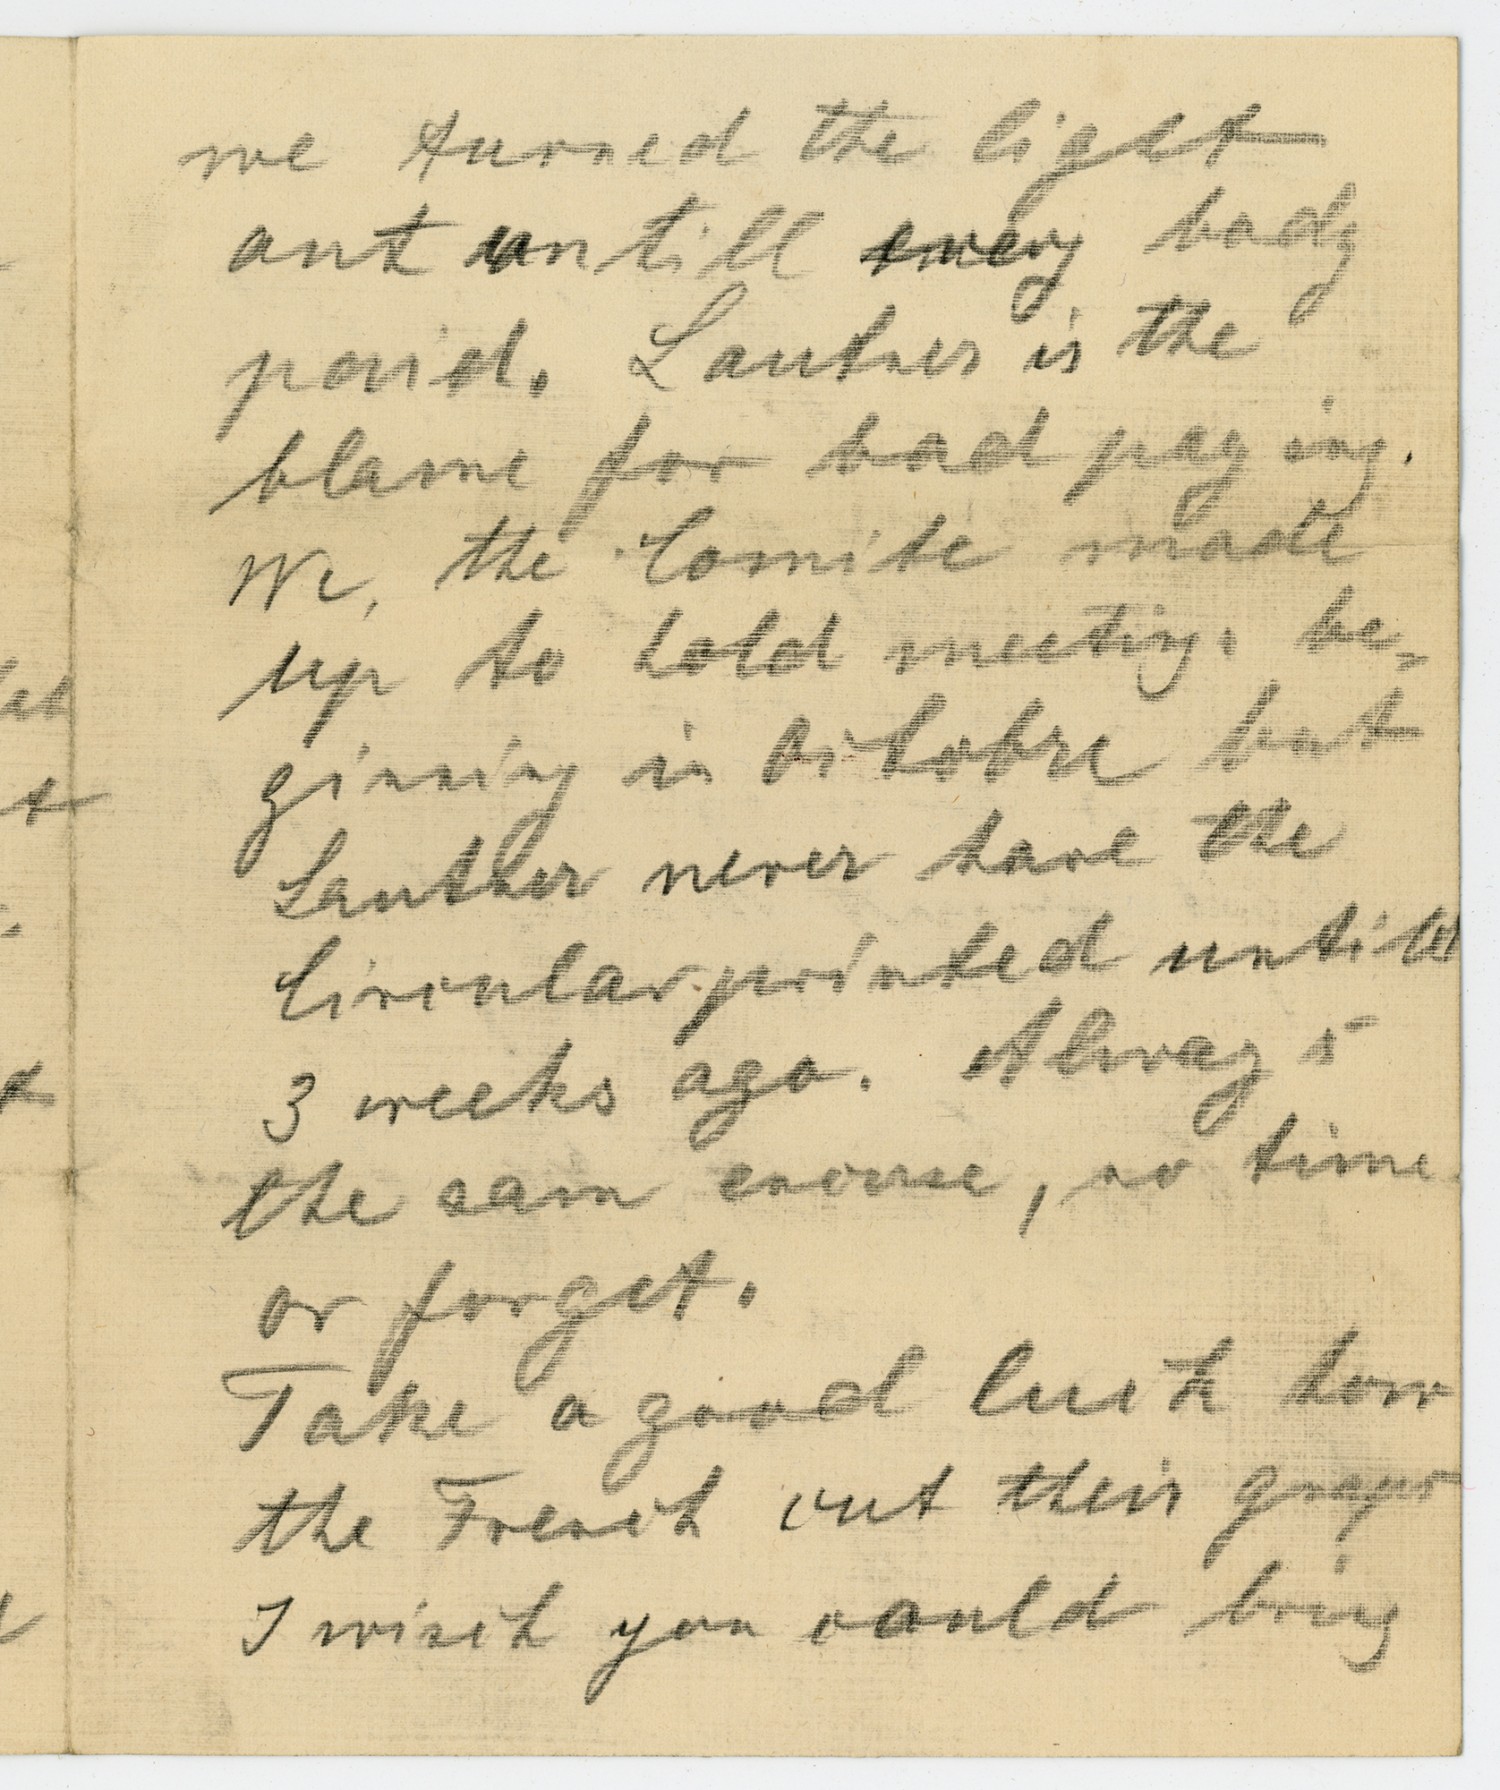 we turned the light
out untill every body
paid. Lautner is the
blame for bad paying.
We, the Comite made
up to hold meeting. be-
ginning in Octobre but
Lautner never have the
Circular printed untill
3 weeks ago. Always
the sam excuse, no time
or forget.
Take a good luck how
the French cut their graps
I wisch you could bring